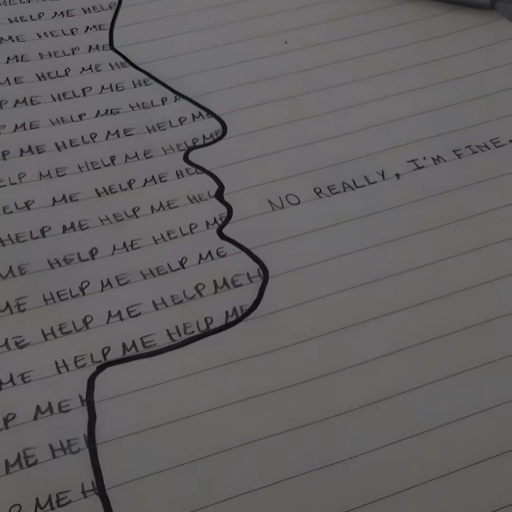 HELP ME HELP
ME HELP ME HELP
ME HELP ME HELP ME
ME HELP ME HE
P ME HELP ME HE
P ME HELP ME HELP
P ME HELP ME HELP ME
ELP ME HELP ME HELP ME
ELP ME HELP ME HEL
HELP ME HELP ME HEL
ME HELP ME HELP ME
ME HELP ME HELP ME
ME HELP ME HELP ME H
ME HELP ME HELP ME
P ME H
ME HEL
P ME H
NO REALLY, I'M FINE.